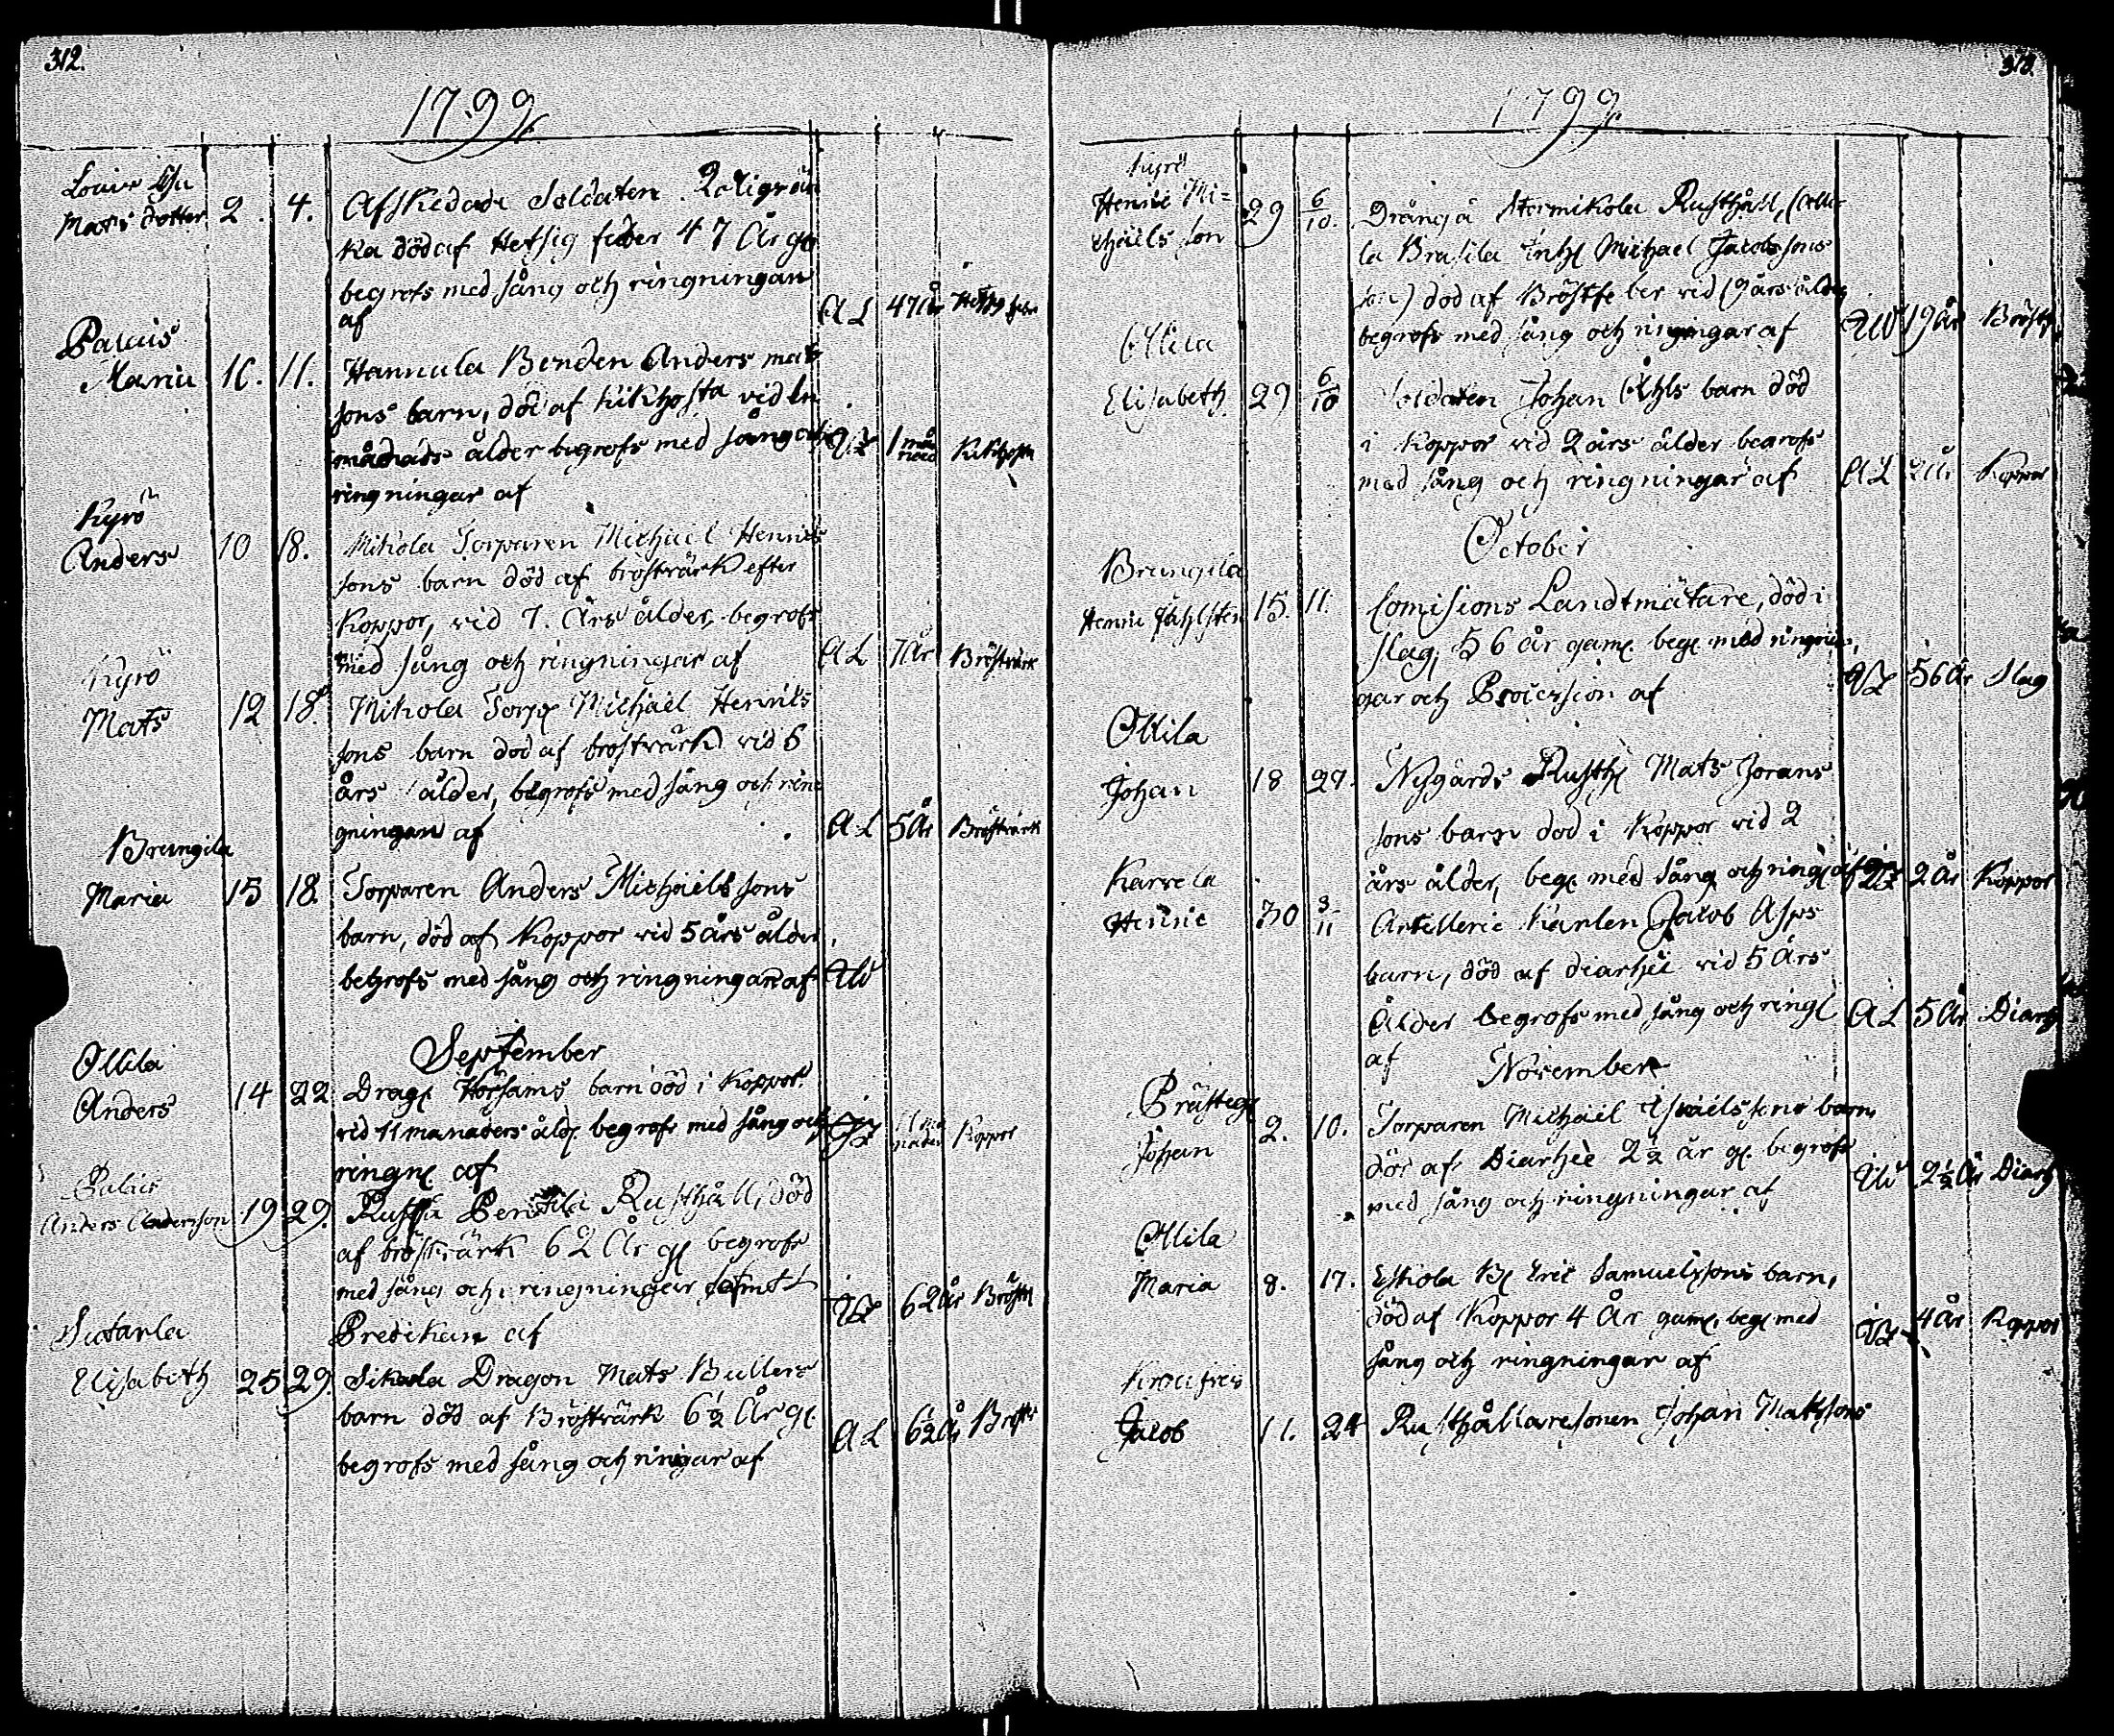 312.
1799
Mats dotter 2. 4. Afskedade Soldaten
ka död af Hetsig feber 47 År ga
begrofs med sång och ringningar
af AL 47 år
Palais
Maria 10. 11. Hannula Bonden Anders Mats
sons barn, död af kikhosta vid 1 m
månads ålder begrofs med sång och 1 månad Kikhosta
ringningar af
Kyrö
Anders 10 18. Mikola Torparen Michael Henriks
sons barn död af bröstvärk efter
Koppor, vid 7. Års ålder, begrofs
med sång och ringningar af AL 7 År Bröstvärk
Kyrö
Mats 12 18. Mikola Torp Michaël Henriks
sons barn dod af bröstvärk vid 5
års ålder, begrofs med sång och rin
gningar af AL 5 År Bröstvärk
Brungila
Maria 15 18 Torparen Anders Michaels sons
barn, död af Koppor vid 5 års ålder,
begrofs med sång och ringningar af
September
Ollila
Anders 14 22 Drag Hörsams barn död i Koppor
vid 11 manaders åld begrofs med sång och Koppor
ringn af
Palais
Anders Andersson 19 29. Rusthåll, död
af bröstvärk 62 År gl begrofs
med sång och ringningar samt 62 år Bröstv
Predikan af
Elisabeth 25 29. Dragon Mats Bullers
barn död af Bröstvärk 6½ År gl
begrofs med sång och ringar af AL 6½ År
313.
1799
Kyrö
Henric Mi=
chaels son 29 6/10. Dräng å Stormikola Rusthåll,
Michael Jacobs sons
son) död af Bröstfeber vid 19 års ålder
begrofs med sång och ringningar af 19 år
Ollila
Elisabeth 29 6/10 Soldaten Johan Åhls barn död
i Koppor vid 2 års ålder begrofs
med sång och ringningar af AL 2 år Koppor
October
Brungila
Henric 15. 11. Comisions Landtmätare, död i
slag, 56 år gam beg med ringnin
gar och Procession af 56 År Slag
Ollila
Johan 18 27. Nygårds Rusth Mats Jorans
sons barn dod i Koppor vid 2
års ålder, beg med sång och ring af 2 År Koppor
Karvela
Henric 30 3/11 Artillerie Karlen Jacob Asps
barn, död af diarhée vid 5 Års
Ålder begrofs med sång och ring AL 5 År Diarh
af
November
Prästeg
Johan 2. 10. Torparen Michaël Israëls sons barn
död af Diarhée 2½ år g. begrofs
med sång och ringningar af 2½ År Diarh
Ollila
Maria 8. 17. Eskola B Eric Samuelssons barn,
död af Koppor 4 År gam, beg med 4 År Koppor
sång och ringningar af
Jacob 11. 24 Rusthållaresonen Johan Matssons